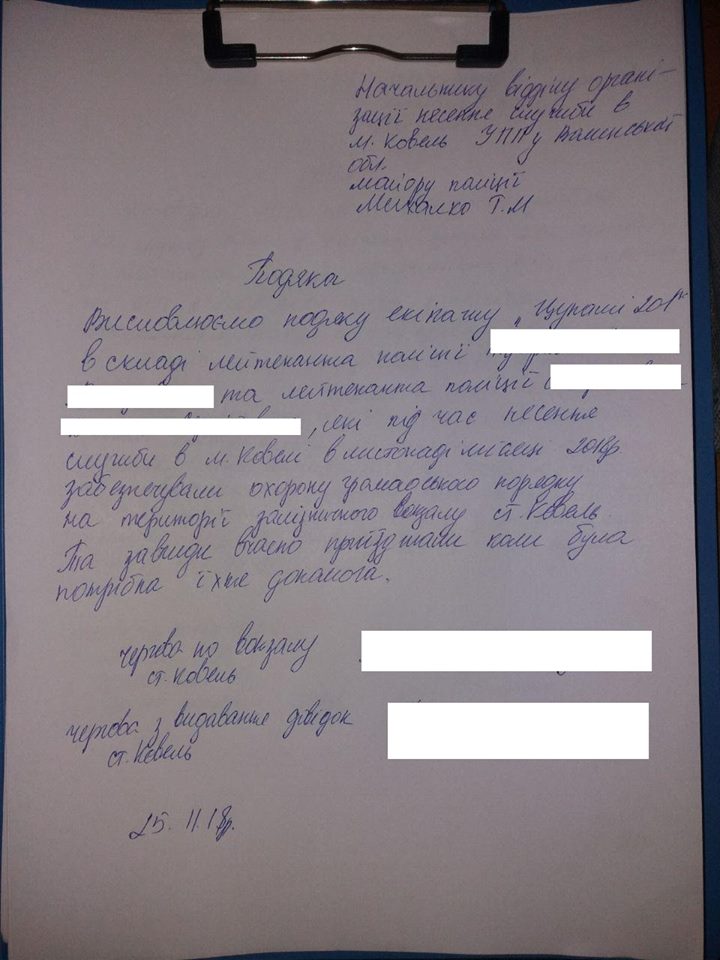 Начальнику відділу органі-
зації несення служби в
м. Ковель УПП у Волинській
обл.
майору поліції
Михалко Т.М
Подяка
Висловлюємо подяку екіпажу „Цунамі 201"
в складі лейтенанта поліції
та лейтенанта поліції
, які під час несення
служби в м. Ковелі в листопаді місяці 2018р.
забезпечували охорону громадського порядку
на території залізничного вокзалу ст. Ковель.
Та завжди вчасно приїзджали коли була
потрібна їхнє допомога.
чергова по вокзалу
ст. Ковель
чергова з видавання довідок
ст. Ковель
25. 11. 18р.